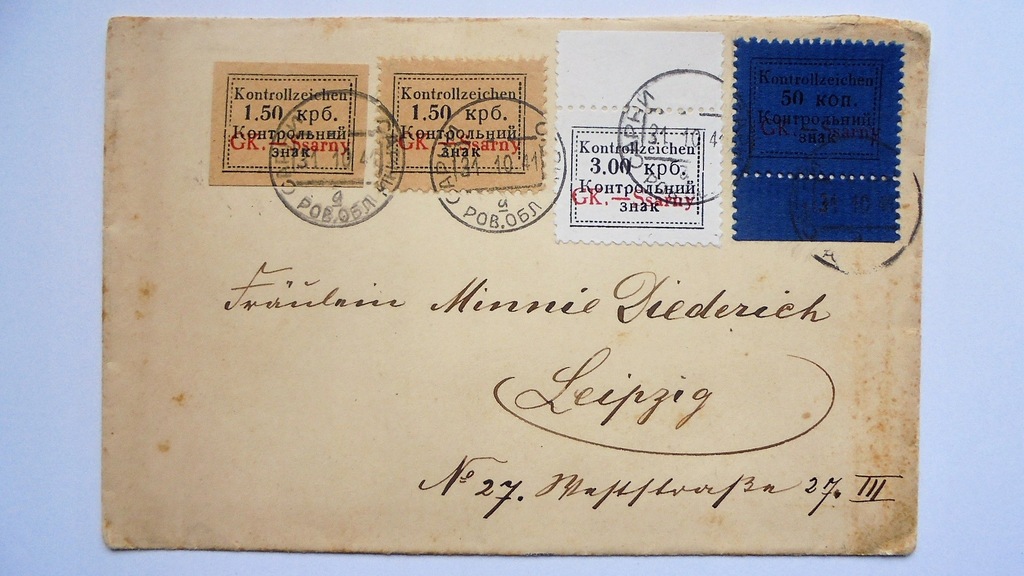 Kontrollzeichen
1.50 крб.
Контрольний
знак
GK. — Ssarny
Kontrollzeichen
1.50 крб.
Контрольний
знак
GK. — Ssarny
Kontrollzeichen
3.00 крб.
Контрольний
знак
GK. — Ssarny
Kontrollzeichen
50 коп.
Контрольний
знак
GK. — Ssarny
31 10 41
а
РОВ.ОБЛ
САРНИ
31 10 41
а
РОВ.ОБЛ
САРНИ
31 10 4
31 10 4
Fräulein Minnie Diederich
Leipzig
No 27. Weststraße 27. III